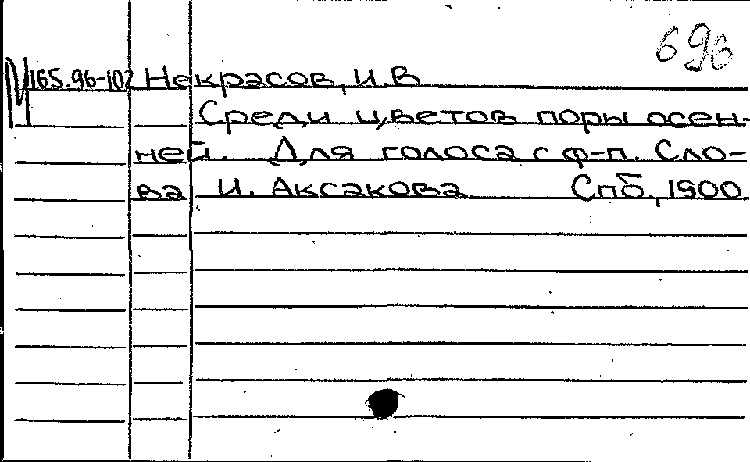 696
М 165.96-102 Некрасов, И.В
Среди цветов поры осен-
ней. Для голоса с ф-п. Сло-
ва И. Аксакова Спб., 1900